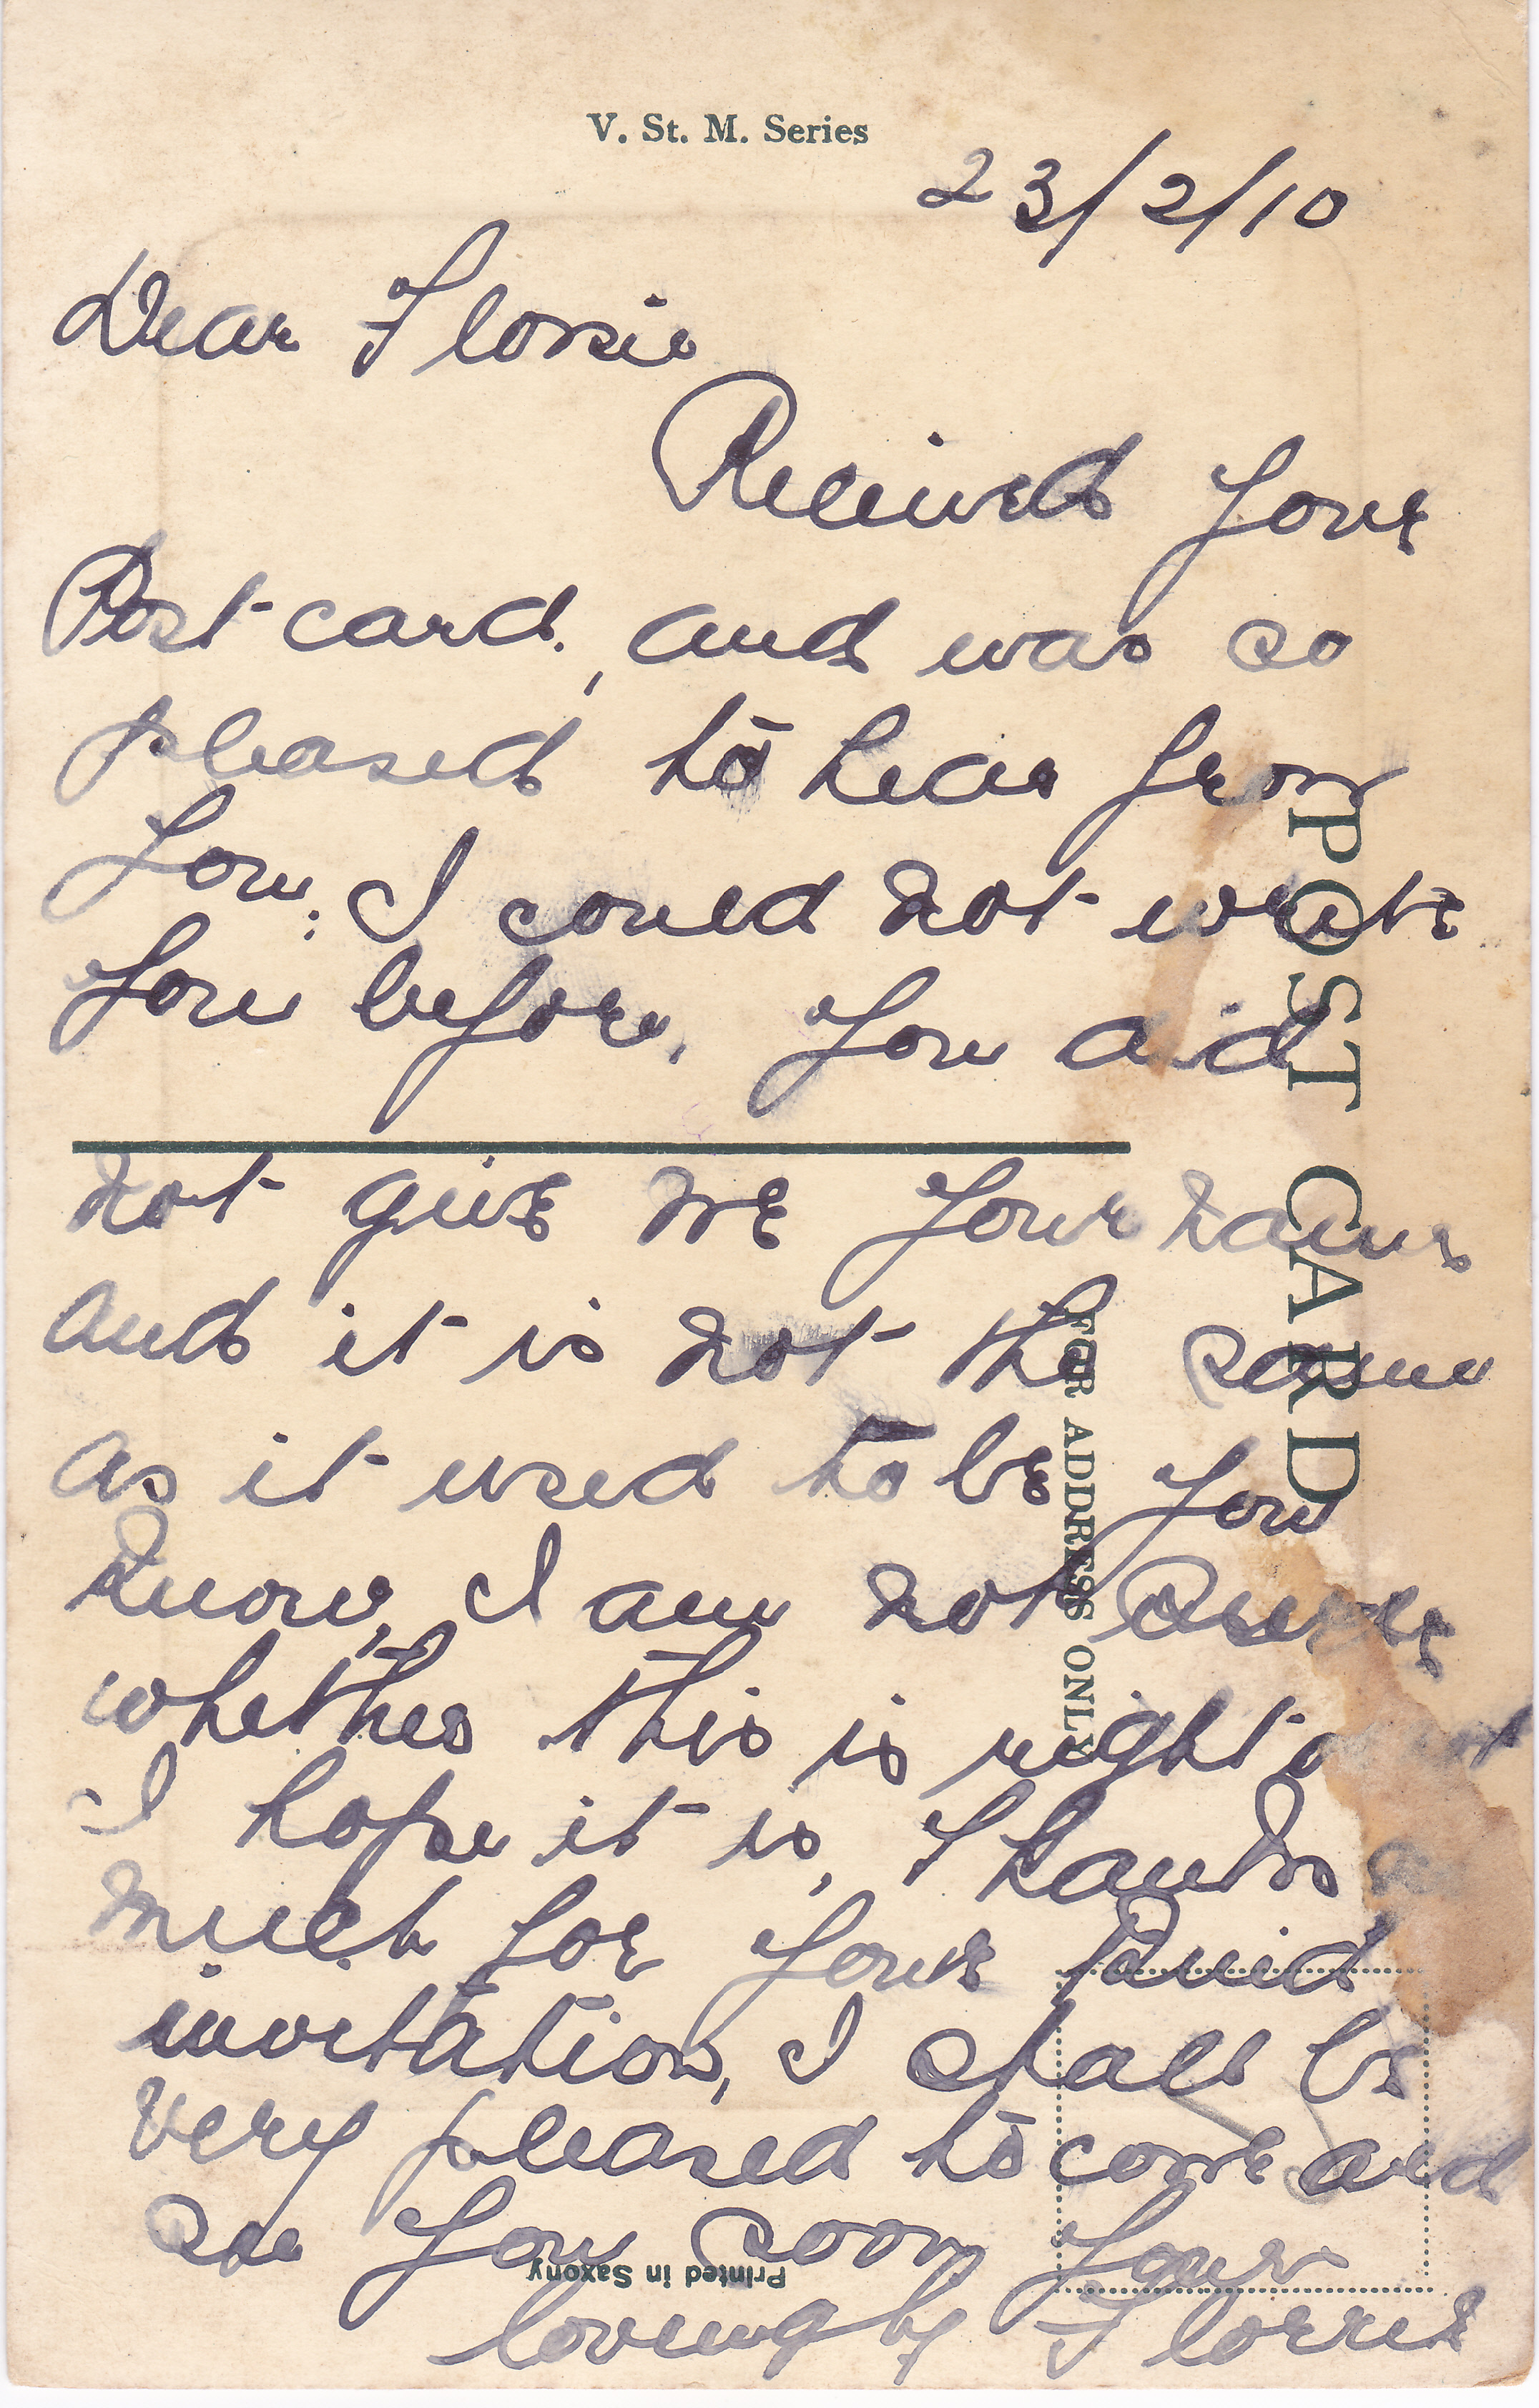 V. St. M. Series
23/2/10
Dear Flossie
Received your
Post card, and was so
pleased to hear from
you; I could not write
you before, you did
not give me your name
and it is not the same
as it used to be you
know, I am not
whether this is right
I hope it is, Thanks
much for your kind
invitation, I shall be
very pleased to come and
see you soon yours
lovingly Florrie
POST CARD
FOR ADDRESS ONLY
Printed in Saxony